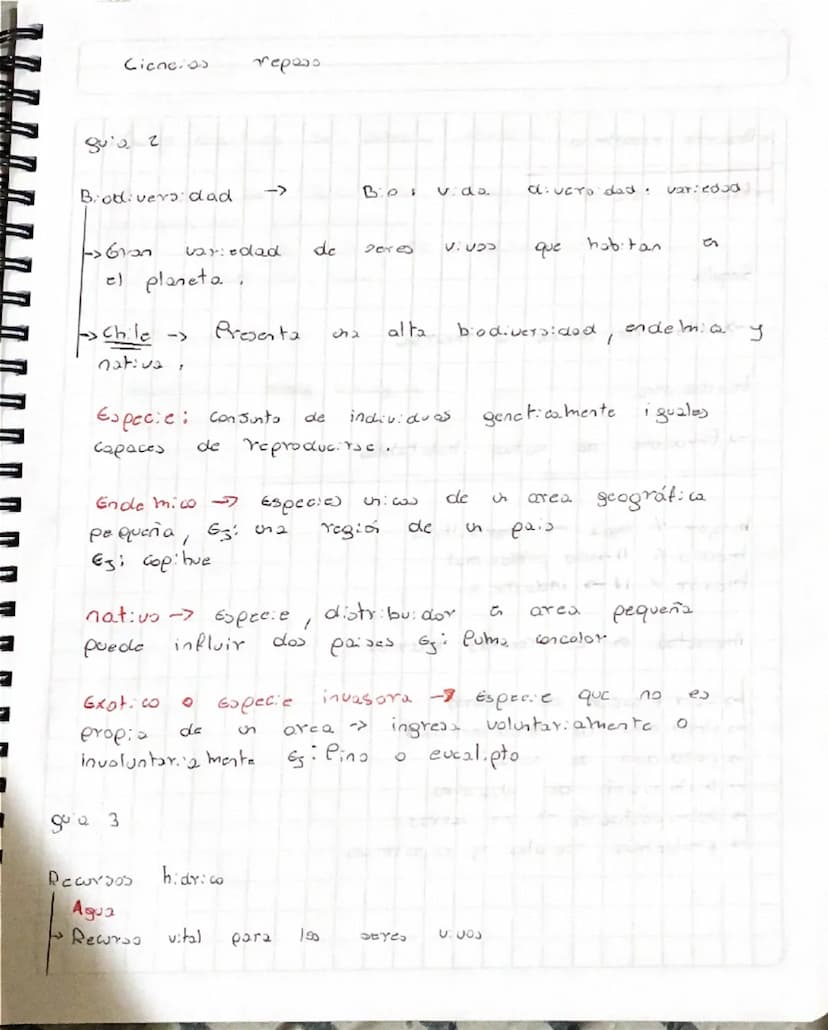 Ciencias repaso
guia 2
Biodiversidad -> Bio: vida diversidad: variedad
-> Gran variedad de seres vivos que habitan en
el planeta.
-> Chile -> Presenta una alta biodiversidad, endemica y
nativa.
Especie: conjunto de individuos geneticamente iguales
capaces de reproducirse.
Endemico -> Especies unicas de un area geográfica
pequeña, Ej: una región de un pais
Ej: copihue
nativo -> Especie, distribuidor en area pequeña
puede influir dos paises Ej: Puma concolor
Exotico o especie invasora -> Especie que no es
propia de un area -> ingresa voluntariamente o
involuntariamente Ej: Pino o eucalipto
guia 3
Recursos hidrico
Agua
-> Recurso vital para los seres vivos